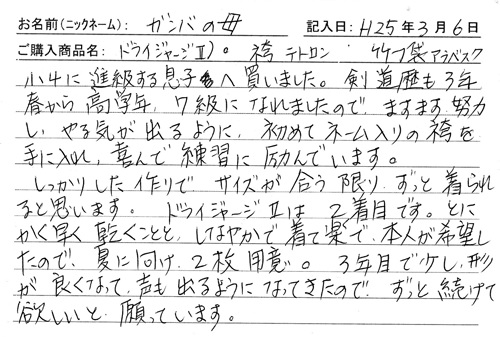 お名前(ニックネーム): ガンバの母 記入日: H25年3月6日
ご購入商品名: ドライジャージⅡ)。 袴 テトロン 竹刀袋アラベスク
小4に進級する息子へ買いました。剣道歴も3年
春から高学年、7級になれましたので、ますます努力
し、やる気が出るように、初めてネーム入りの袴を
手に入れ、喜んで練習に励んでいます。
しっかりした作りで サイズが合う限り ずっと着られ
ると思います。 ドライジャージⅡは 2着目です。とに
かく早く乾くことと、しなやかで着て楽で、本人が希望し
たので、夏に向け、2枚用意。 3年目で少し、形
が良くなって、声も出るようになってきたので ずっと続けて
欲しいと願っています。